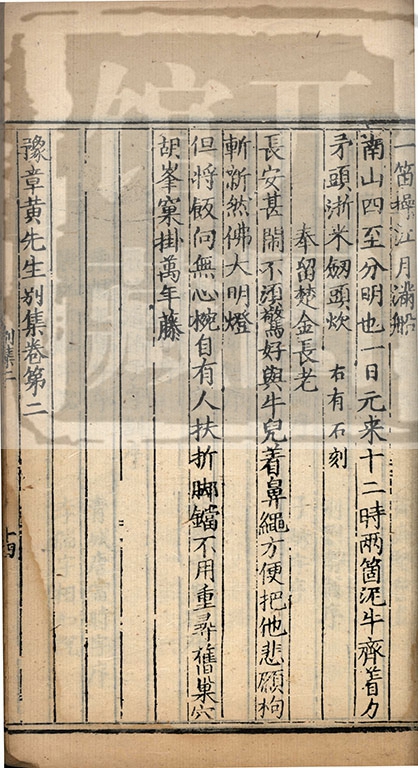 一箇撈江月滿船
南山四至分明也一日元来十二時兩箇泥牛齊着力
矛頭淅米劒頭炊 右有石刻
奉留楚金長老
長安甚鬧不湏驚好與牛兒着鼻繩方便把他悲願拘
斬新然佛大明燈
但將飯向無心椀自有人扶折脚鐺不用重尋舊巢穴
胡峯窠掛萬年藤
豫章黃先生別集卷第二
別集二
十四